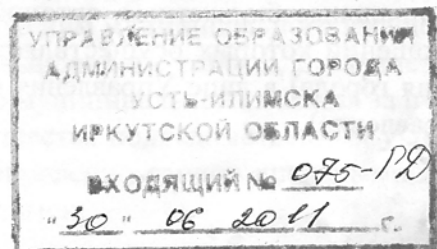 УПРАВЛЕНИЕ ОБРАЗОВАНИЯ
АДМИНИСТРАЦИИ ГОРОДА
УСТЬ-ИЛИМСКА
ИРКУТСКОЙ ОБЛАСТИ
ВХОДЯЩИЙ № 075-РД
"30" 06 2011 г.